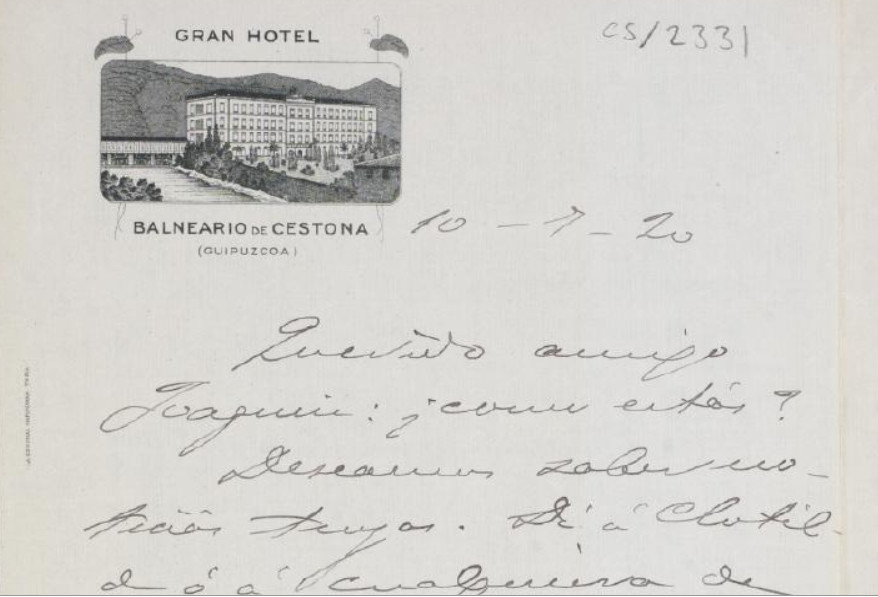 GRAN HOTEL
CS/2331
BALNEARIO DE CESTONA
(GUIPUZCOA)
10 - 7 - 20
Querido amigo
Joaquin: ¿como estás?
Deseamos saber no-
ticias tuyas. Di á Clotil-
d ó á cualquiera de